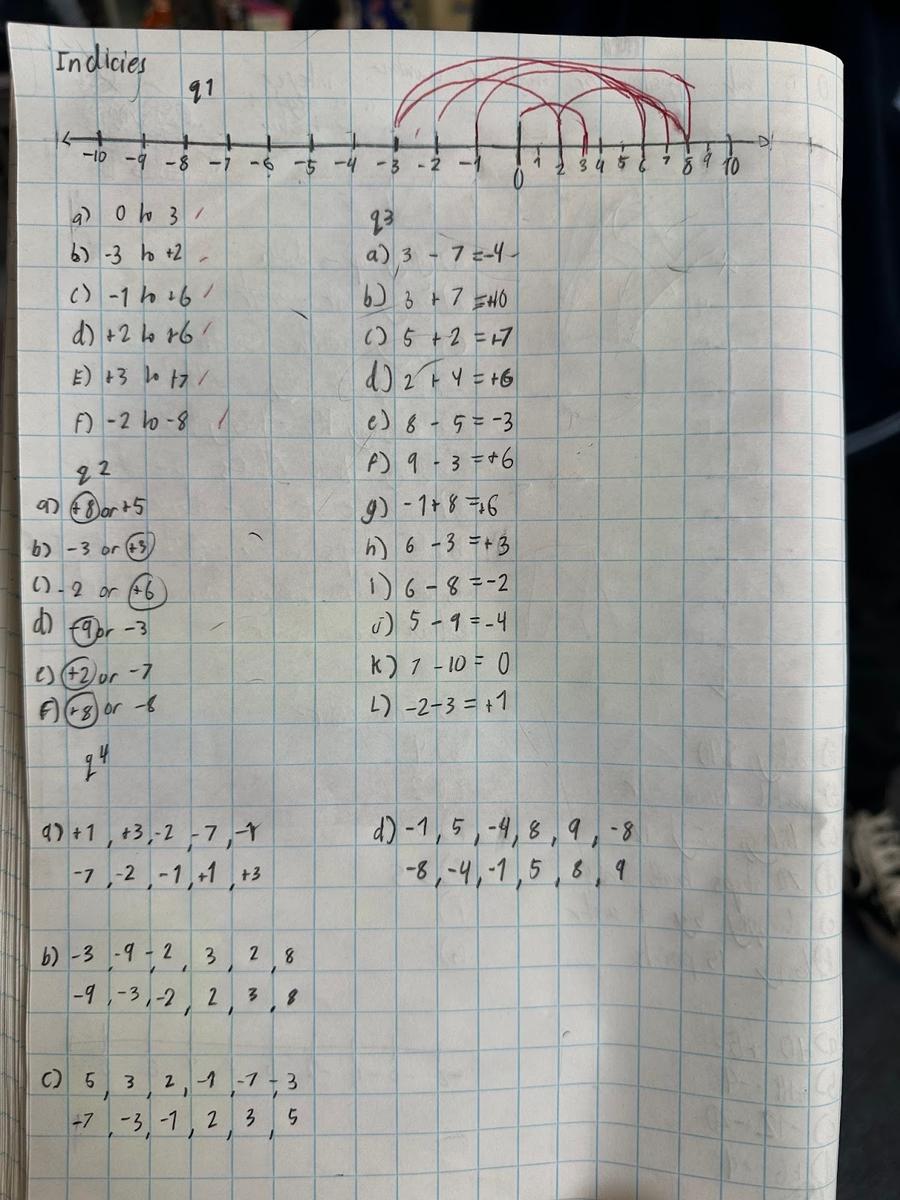 Indicies
q1
-10 -9 -8 -7 -6 -5 -4 -3 -2 -1 0 1 2 3 4 5 6 7 8 9 10
a) 0 to 3
b) -3 to +2
c) -1 to +6
d) +2 to +6
E) +3 to +7
F) -2 to -8
q2
a) +8 or +5
b) -3 or +3
c) -2 or +6
d) +9 or -3
e) +2 or -7
F) +8 or -8
q3
a) 3 - 7 = -4
b) 3 + 7 = +10
c) 5 + 2 = +7
d) 2 + 4 = +6
e) 8 - 5 = -3
f) 9 - 3 = +6
g) -1 + 8 = +6
h) 6 - 3 = +3
i) 6 - 8 = -2
j) 5 - 9 = -4
k) 7 - 10 = 0
L) -2 - 3 = +1
q4
a) +1, +3, -2, -7, -1
-7, -2, -1, +1, +3
b) -3, -9, -2, 3, 2, 8
-9, -3, -2, 2, 3, 8
c) 5, 3, 2, -1, -7, -3
-7, -3, -1, 2, 3, 5
d) -1, 5, -4, 8, 9, -8
-8, -4, -1, 5, 8, 9